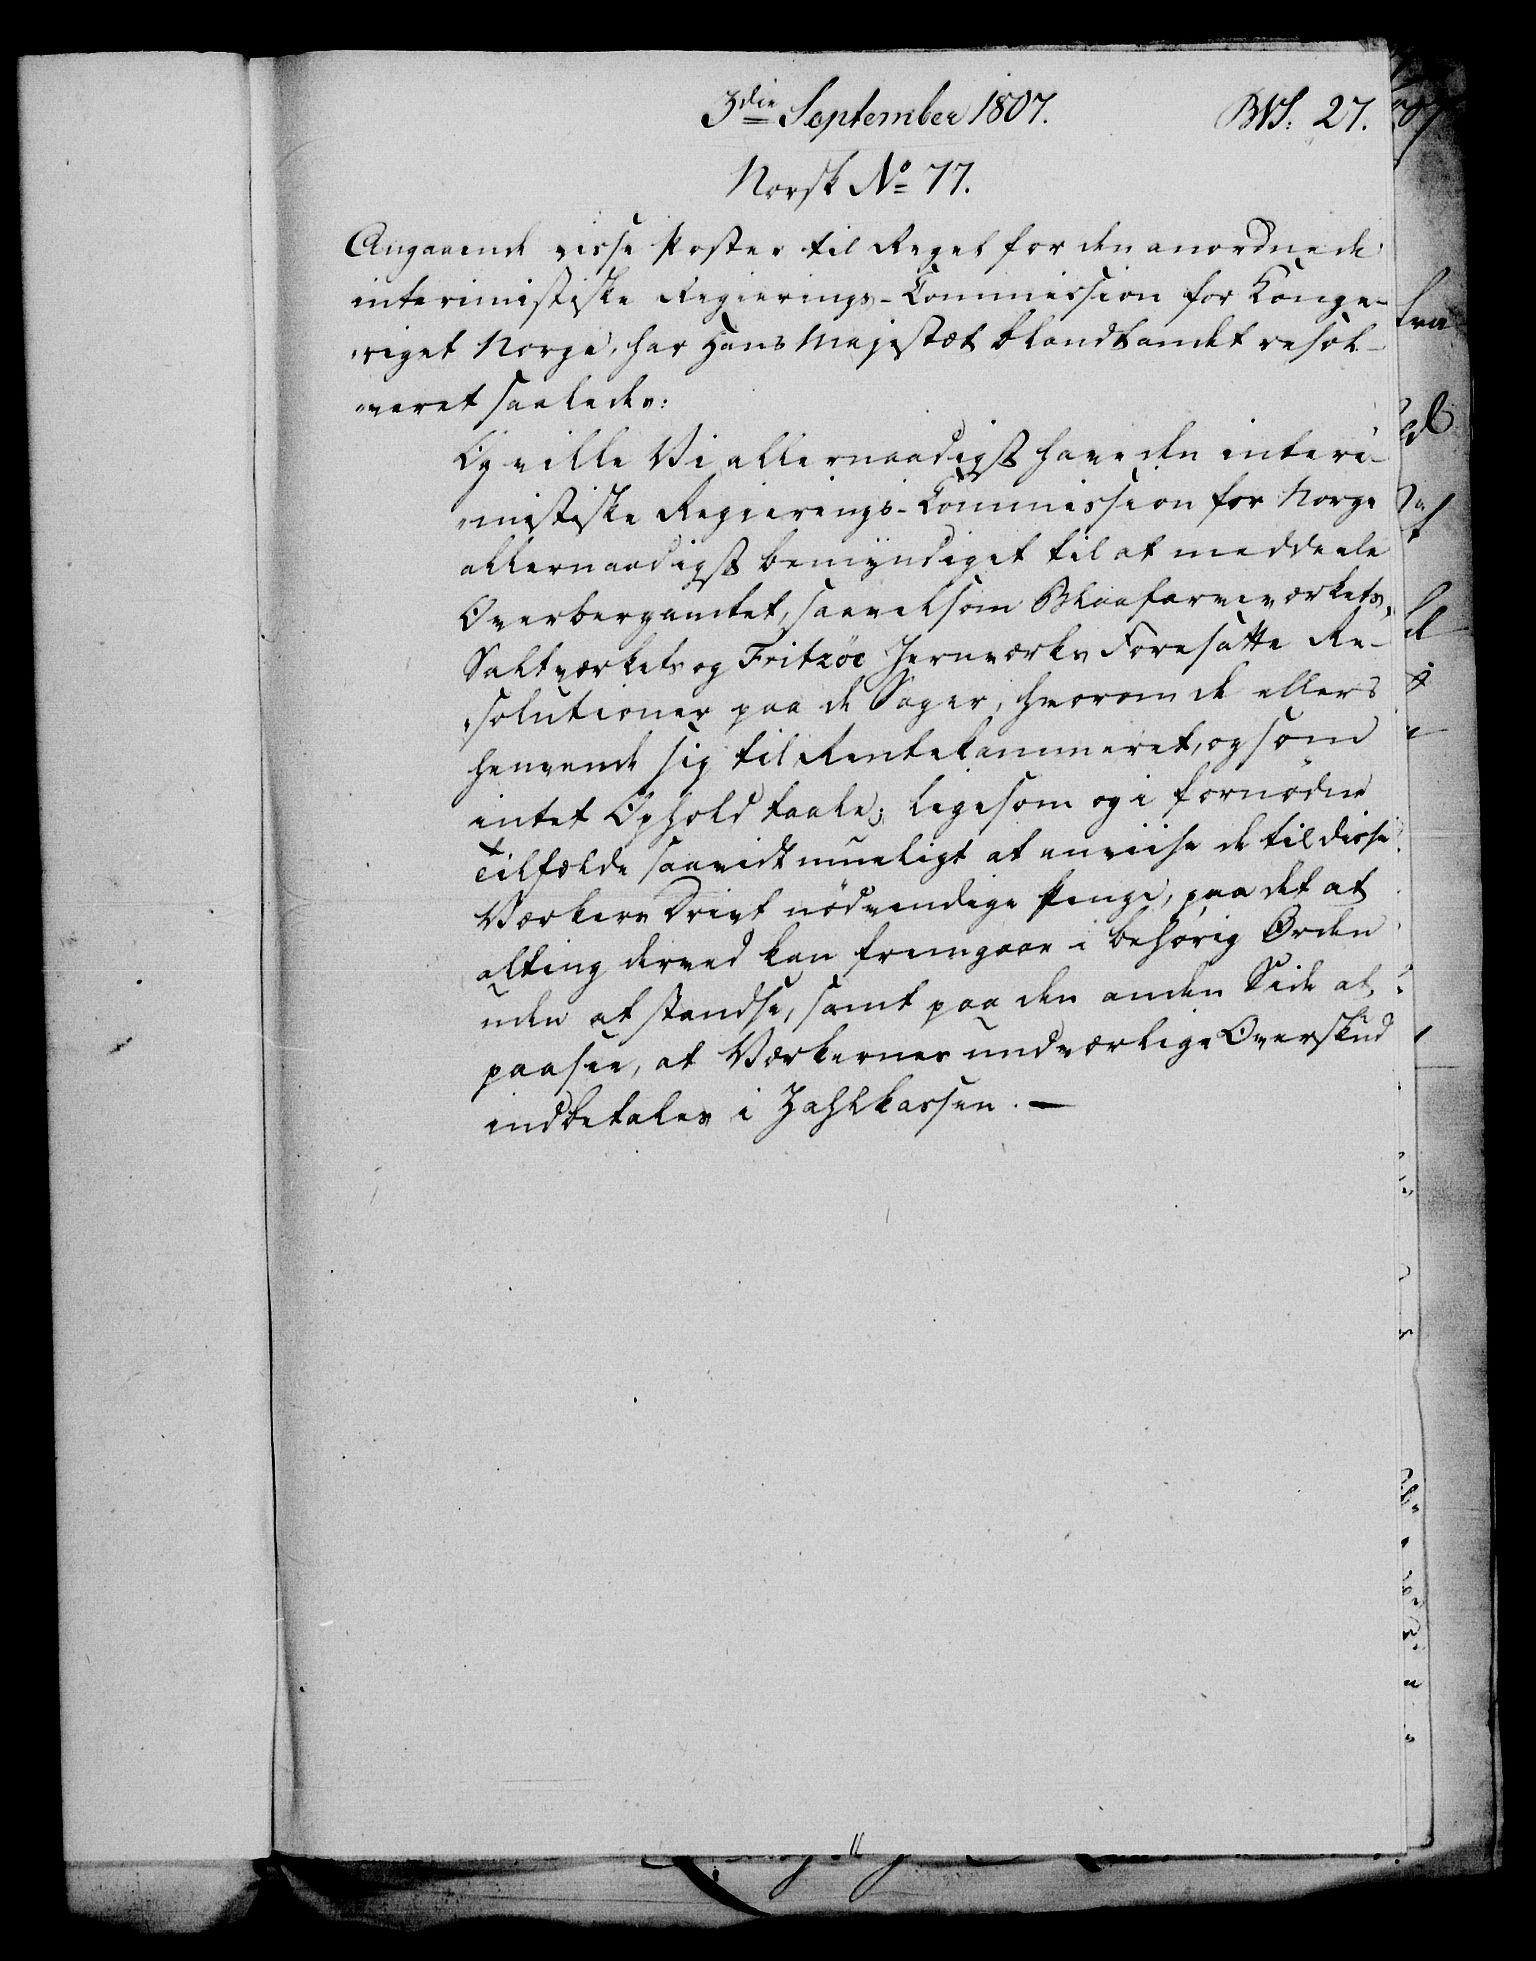 3die September 1807.
BVS: 27.
Norsk No 77.
Angaaende visse Poster til Regel for den anordnede
interimistiske Regierings-Commission for Konge-
riget Norge, har Hans Majestæt blandt andet resol-
veret saaledes:
Og ville Vi allernaadigst have den interi-
mistiske Regierings-Commission for Norge
allernaadigst bemyndiget til at meddeele
Overbergamtet, saavelsom Blaafarveværkets,
Saltværkets og Fritzøe Jernværks Foresatte Re-
solutioner paa de Sager, hvorom de ellers
henvende sig til Rentekammeret, og som
intet Ophold taale; ligesom og i fornødne
Tilfælde saavidt mueligt at anviise de til disse
Værkers Drivt nödvendige Penge, paa det at
alting derved kan fremgaae i behørig Orden
uden at standse, samt paa den anden Side at
paasee, at Værkernes undværlige Overskud
indbetales i Zahlkassen. —